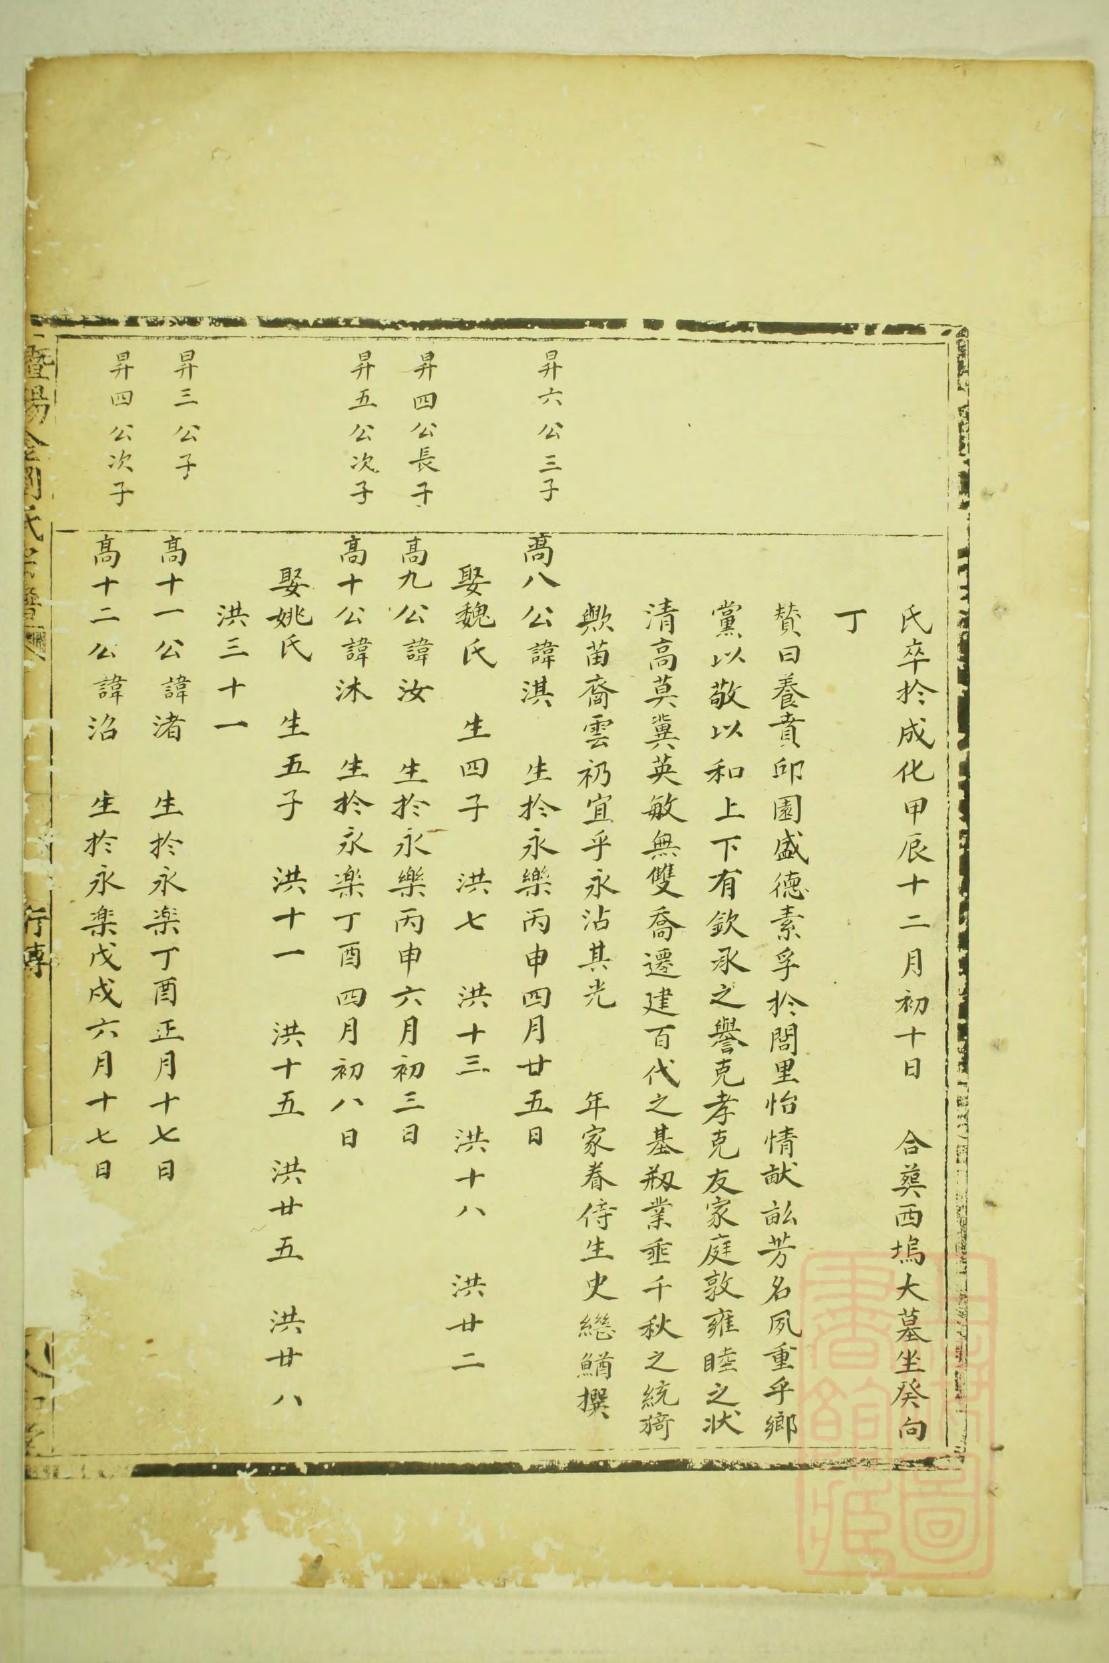 氏卒於成化甲辰十二月初十日　合葬西塢大墓坐癸向
丁
賛曰養賁邱園盛德素孚於閭里怡情猷畝芳名夙重乎鄉
黨以敬以和上下有欽承之譽克孝克友家庭敦雍睦之狀
清高莫冀英敏無雙喬遷建百代之基剏業垂千秋之統猗
歟苗裔雲礽宜乎永沾其光　年家眷侍生史繼鰌撰
昇六公三子
高八公諱淇　生於永樂丙申四月廿五日
娶魏氏　生四子　洪七　洪十三　洪十八　洪廿二
昇四公長子
高九公諱汝　生於永樂丙申六月初三日
昇五公次子
高十公諱沐　生於永楽丁酉四月初八日
娶姚氏　生五子　洪十一　洪十五　洪廿五　洪廿八
洪三十一
昇三公子
高十一公諱渚　生於永楽丁酉正月十七日
昇四公次子
高十二公諱沼　生於永楽戊戌六月十七日
暨陽金澗氏宗譜
行傳